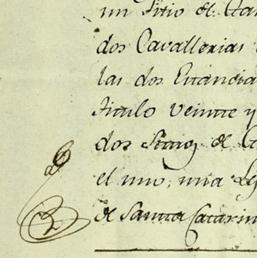 un Sitio de Ga
dos Cavallerias
las dos Estancia
titulo veinte y
dos de
el uno, una
de Santa Catarin